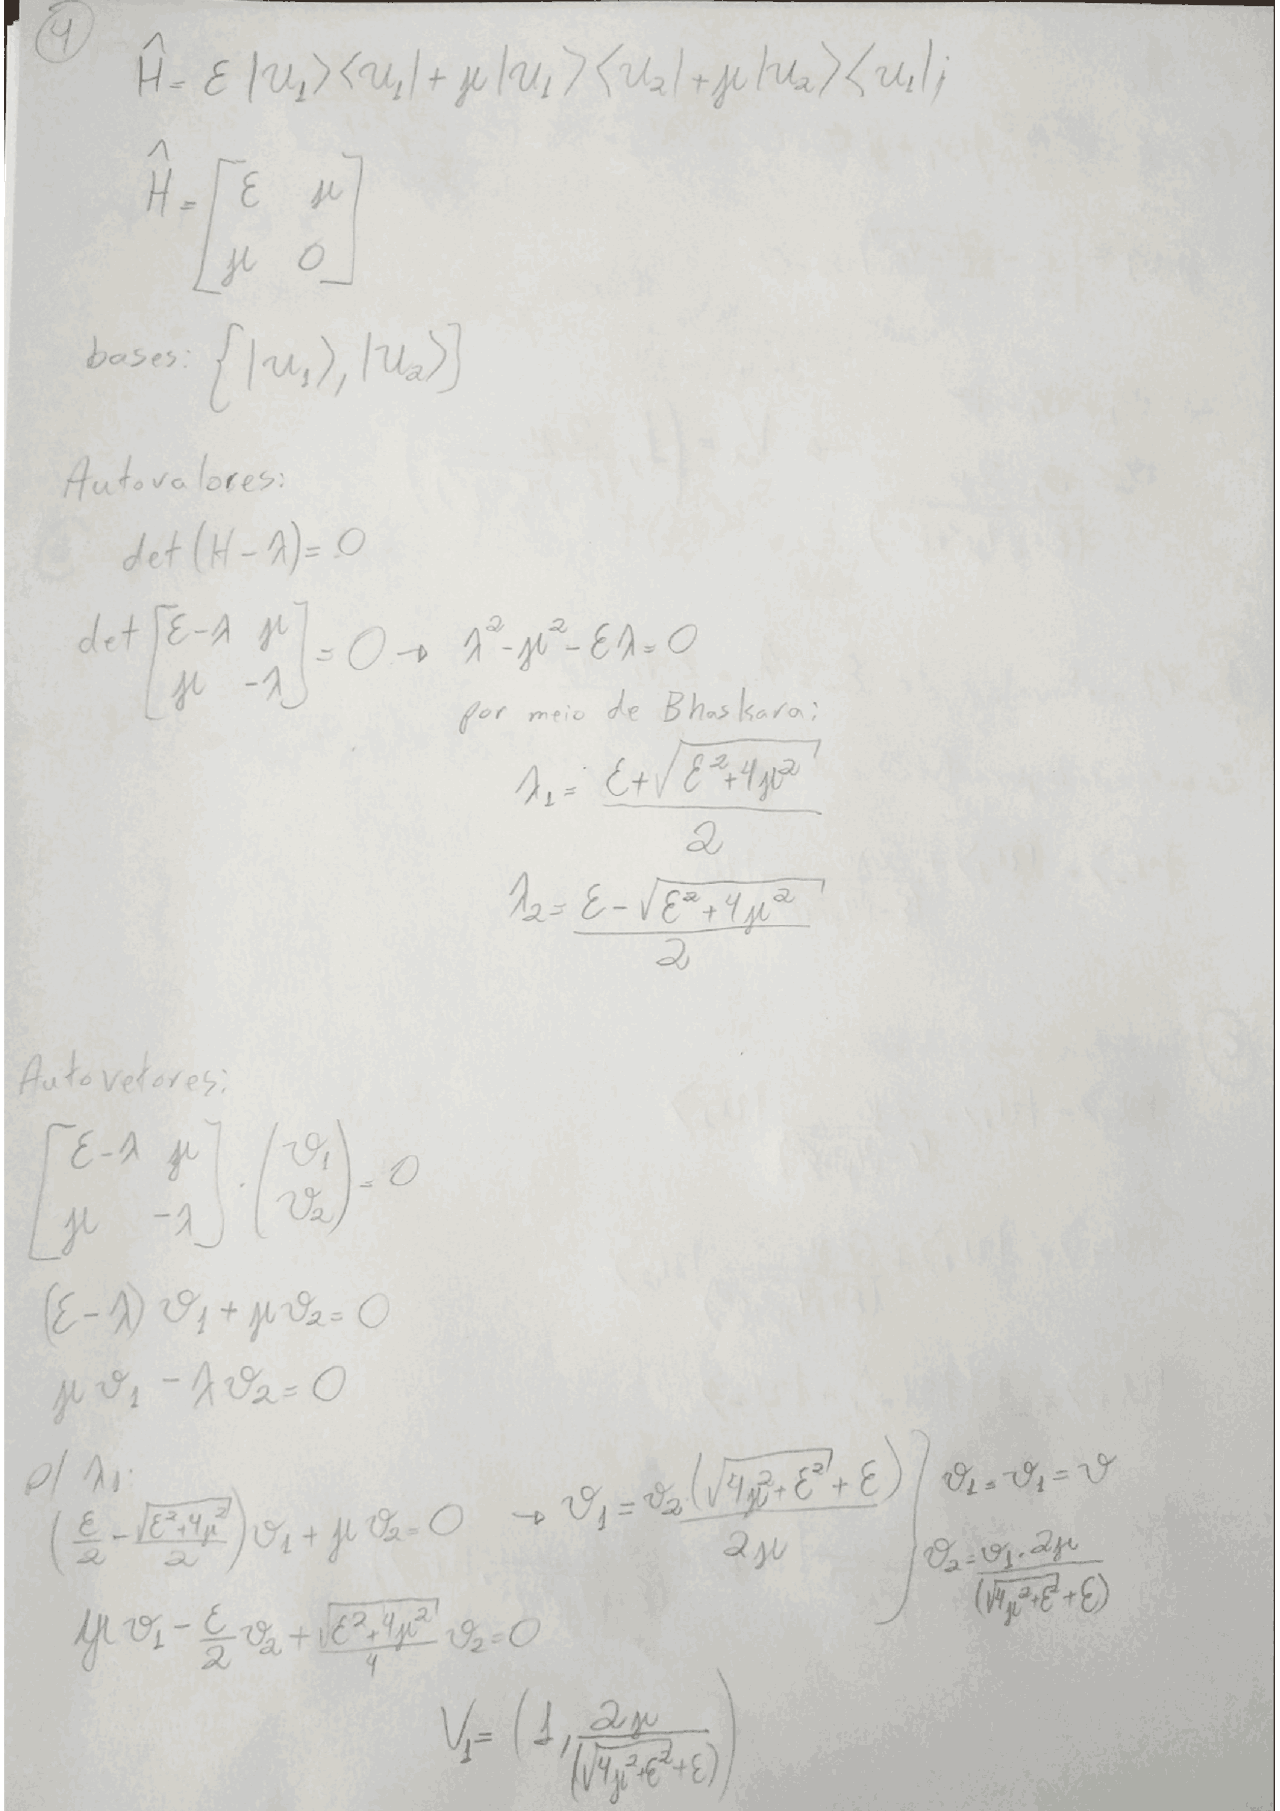 4
Ĥ = ε |u₁⟩⟨u₁| + μ |u₁⟩⟨u₂| + μ |u₂⟩⟨u₁|;
Ĥ = [ε μ
μ 0]
bases: {|u₁⟩, |u₂⟩}
Autovalores:
det (H - λ) = 0
det [ε-λ μ
μ -λ] = 0 → λ² - μ² - ελ = 0
por meio de Bhaskara:
λ₁ = (ε + √(ε² + 4μ²)) / 2
λ₂ = (ε - √(ε² + 4μ²)) / 2
Autovetores:
[ε-λ μ
μ -λ] · (v₁
v₂) = 0
(ε - λ) v₁ + μ v₂ = 0
μ v₁ - λ v₂ = 0
p/ λ₁:
(ε/2 - √(ε² + 4μ²)/2) v₁ + μ v₂ = 0 → v₁ = v₂ (√(4μ² + ε²) + ε) / 2μ } v₁ = v₁ = v
v₂ = v₁ · 2μ / (√(4μ² + ε²) + ε)
μ v₁ - ε/2 v₂ + √(ε² + 4μ²)/4 v₂ = 0
V₁ = (1, 2μ / (√(4μ² + ε²) + ε))